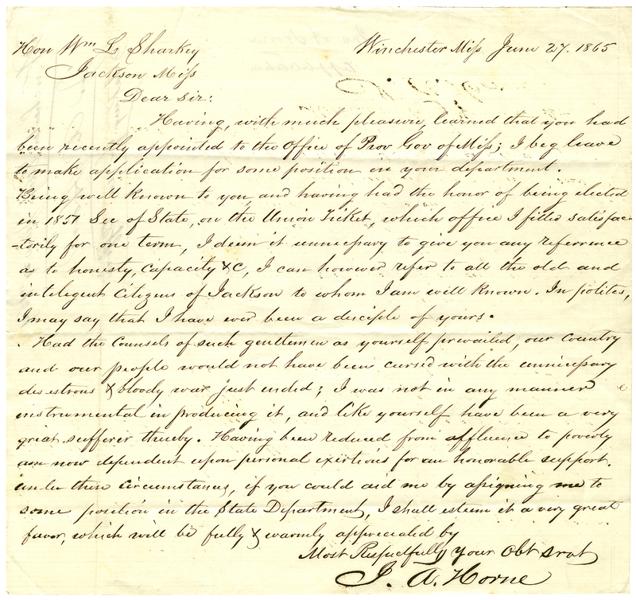 Winchester Miss June 27. 1865
Hon Wm L Sharkey
Jackson Miss
Dear Sir:
Having, with much pleasure, learned that you had
been recently appointed to the Office of Prov. Gov of Miss; I beg leave
to make application for some position in your department.
Being well known to you, and having had the honor of being elected
in 1851 Sec of State, on the Union Ticket, which office I filled satisfac-
-torily for one term, I deem it unnecessary to give you any refference
as to honesty, Capacity &C, I can however refer to all the old and
inteligent Citizens of Jackson to whom I am well known. In polites,
I may say that I have ever been a disciple of yours.
Had the Counsels of such gentlemen as yourself prevailed, our Country
and our people would not have been cursed with the unnecessary
desestrous & bloody war just ended; I was not in any manner
instrumental in producing it, and like yourself have been a very
great sufferer thereby. Having been reduced from affluence to poverty
am now dependent upon personal exertions for an honorable support.
under these circumstances, if you could aid me by assigning me to
some position in the State Department, I shall esteem it a very great
favor, which will be fully & warmly appreciated by
Most Respectfully your Obt Srvt
J. A. Horne